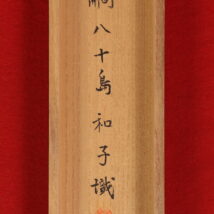 嗣八十島和子識